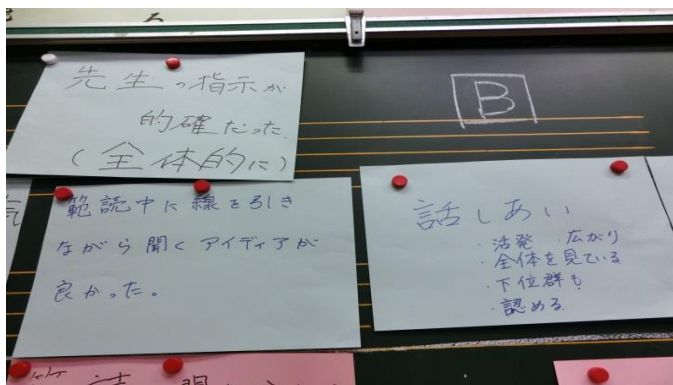 先生の指示が
的確だった。
(全体的に)
B
範読中に線を引き
ながら聞くアイディアが
良かった。
話しあい
・活発 広がり
・全体を見ている
・下位群も
・認める
気